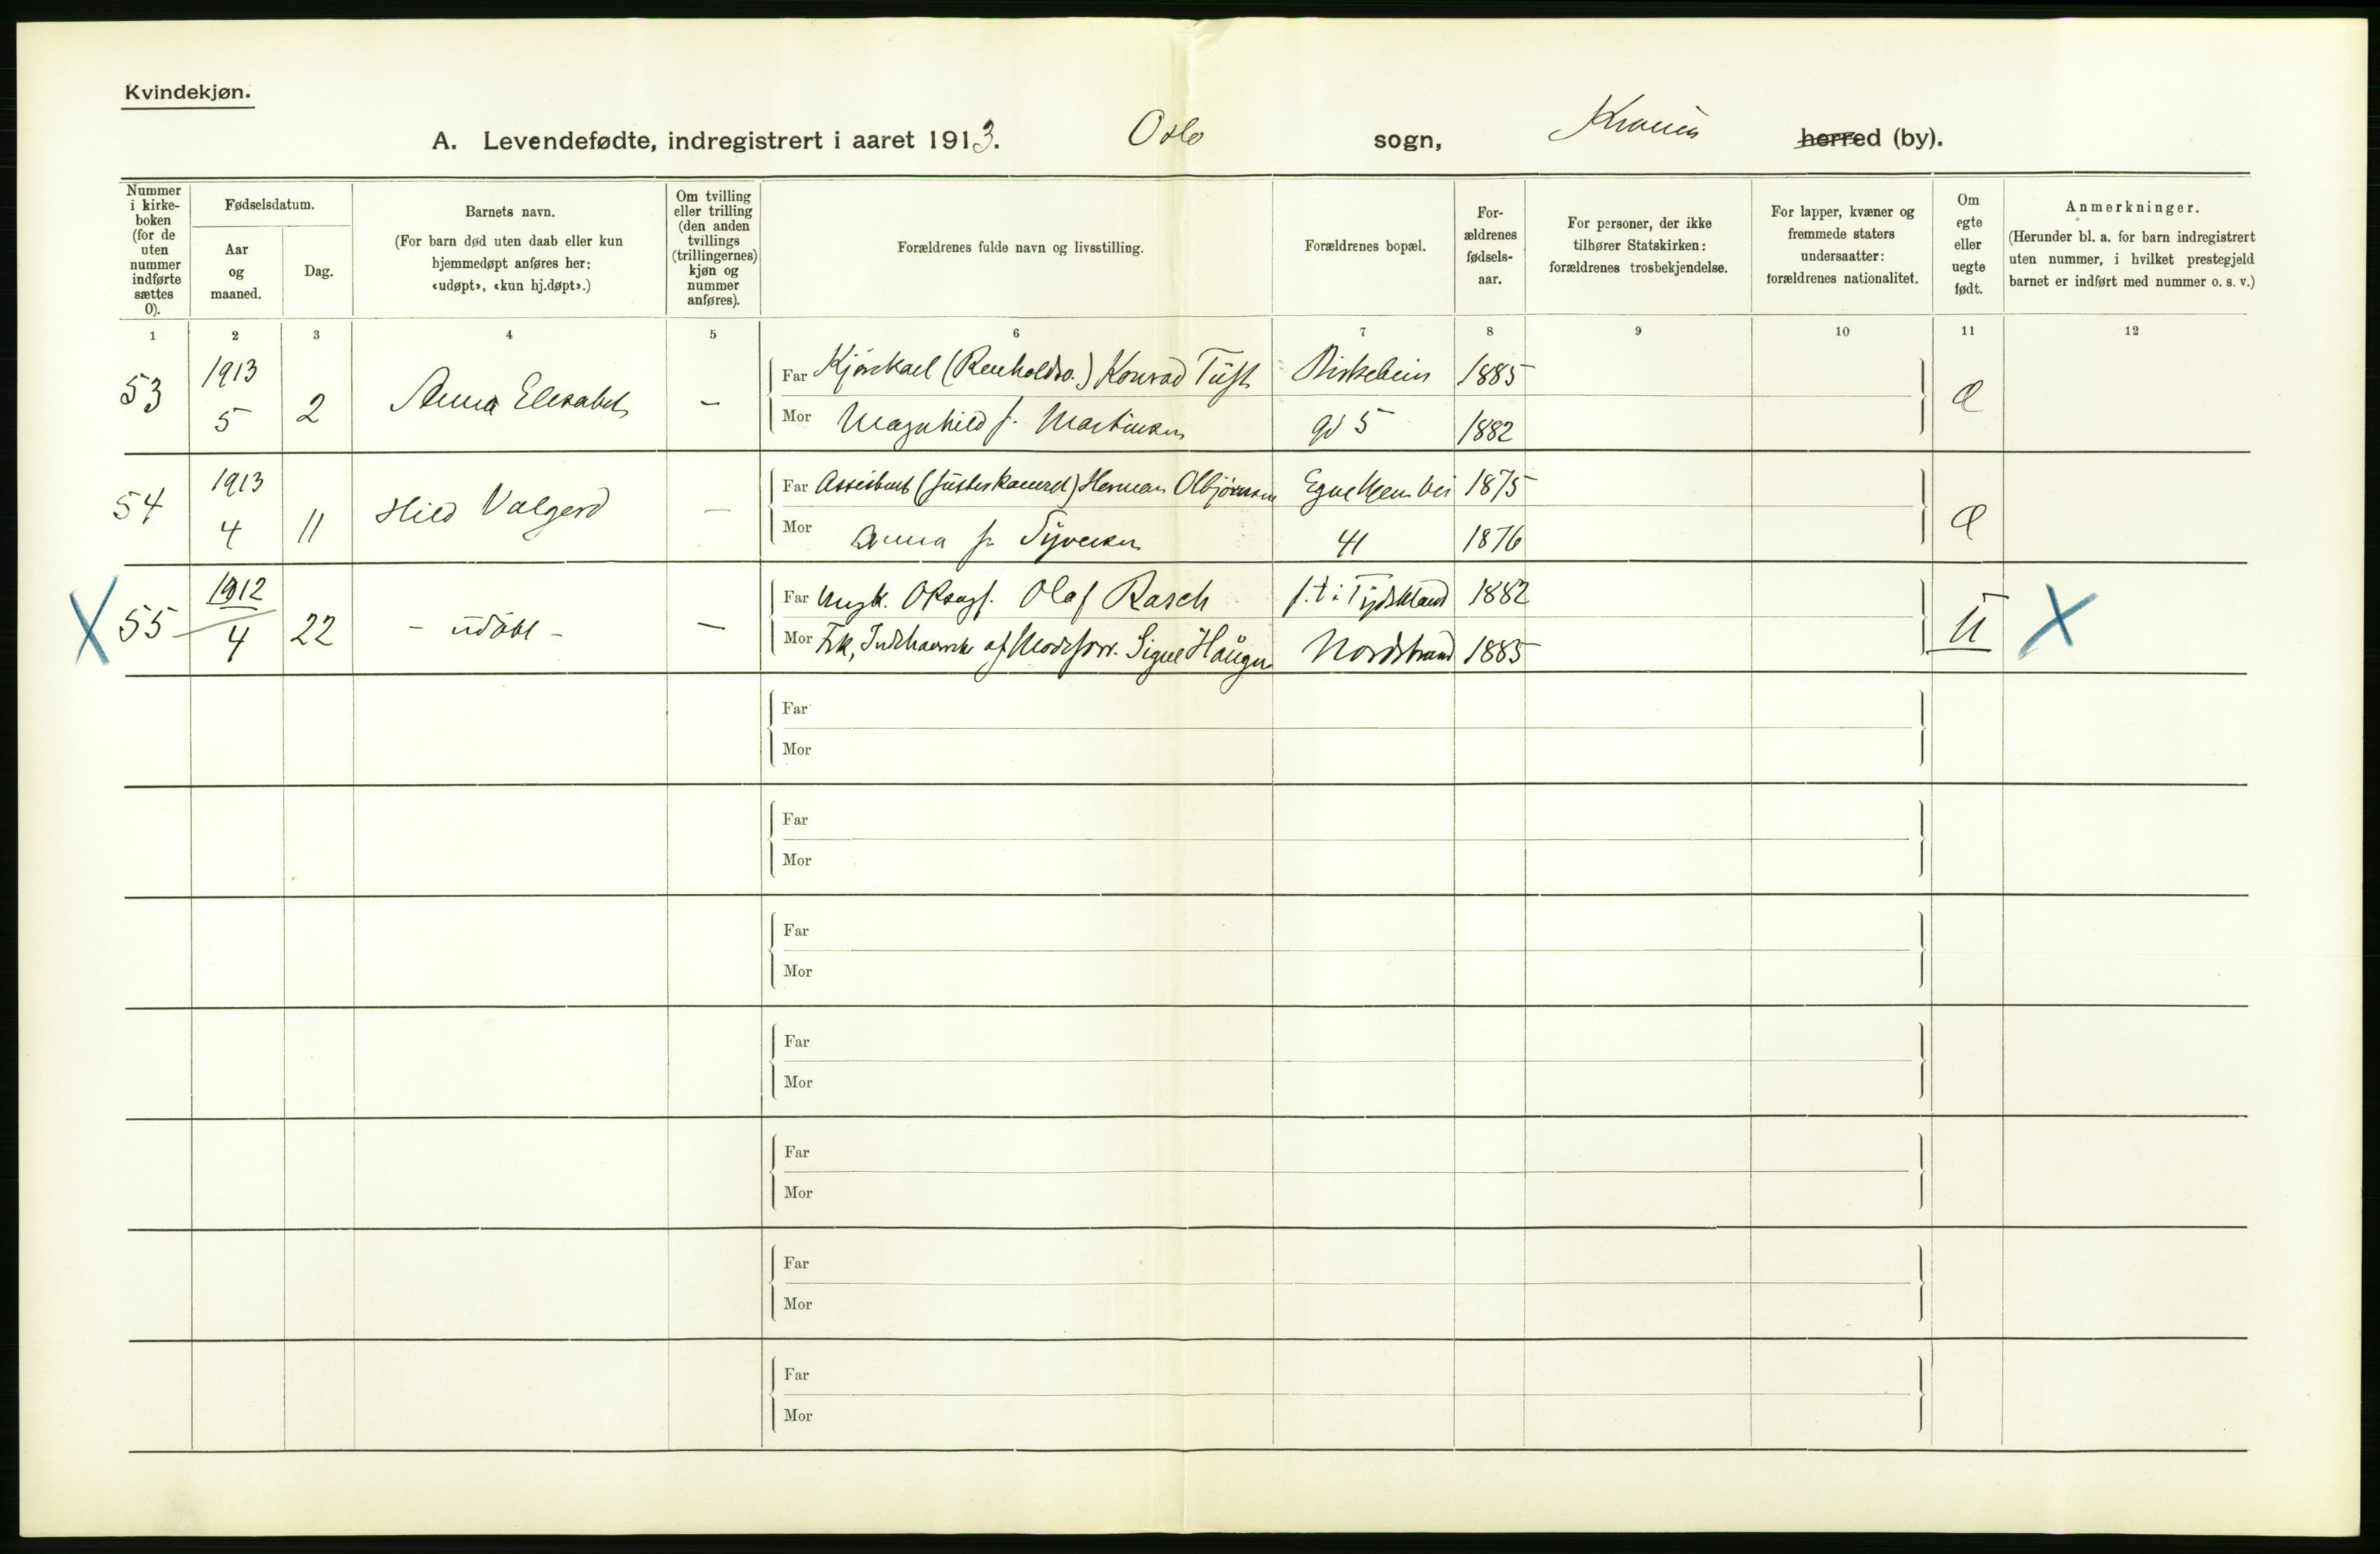 Kvindekjøn.
A. Levendefødte, indregistrert i aaret 1913. Oslo sogn, Krania herred (by).
Nummer i kirke-boken (for de uten nummer indførte sættes 0).
Fødselsdatum.
Aar og maaned.
Dag.
Barnets navn.
(For barn død uten daab eller kun hjemmedøpt anføres her: «udøpt», «kun hj.døpt».)
Om tvilling eller trilling (den anden tvillings (trillingernes) kjøn og nummer anføres).
Forældrenes fulde navn og livsstilling.
Forældrenes bopæl.
For-ældrenes fødsels-aar.
For personer, der ikke tilhører Statskirken: forældrenes trosbekjendelse.
For lapper, kvæner og fremmede staters undersaatter: forældrenes nationalitet.
Om egte eller uegte født.
Anmerkninger.
(Herunder bl. a. for barn indregistrert uten nummer, i hvilket prestegjeld barnet er indført med nummer o. s. v.)
1 2 3 4 5 6 7 8 9 10 11 12
53 1913 5 2 Anna Elisabeth –
Far Kjørekarl (Renholdsv.) Konrad Tuft Birkebein 1885
Mor Magnhild f. Martinsen gd 5 1882
54 1913 4 11 Hild Valgerd –
Far Assistent (Justerkamret) Herman Olbjørnsen Egnehjem Vei 1875
Mor Anna f. Syversen 41 1876
X 55 1912 4 22 – udöbt – –
Far Ungk. Olaf Rasch f.t. i Tydskland 1882
Mor Frk, Indehaverske af Modeforr. Signe Haugen Nordstrand 1885
U X
Far
Mor
Far
Mor
Far
Mor
Far
Mor
Far
Mor
Far
Mor
Far
Mor